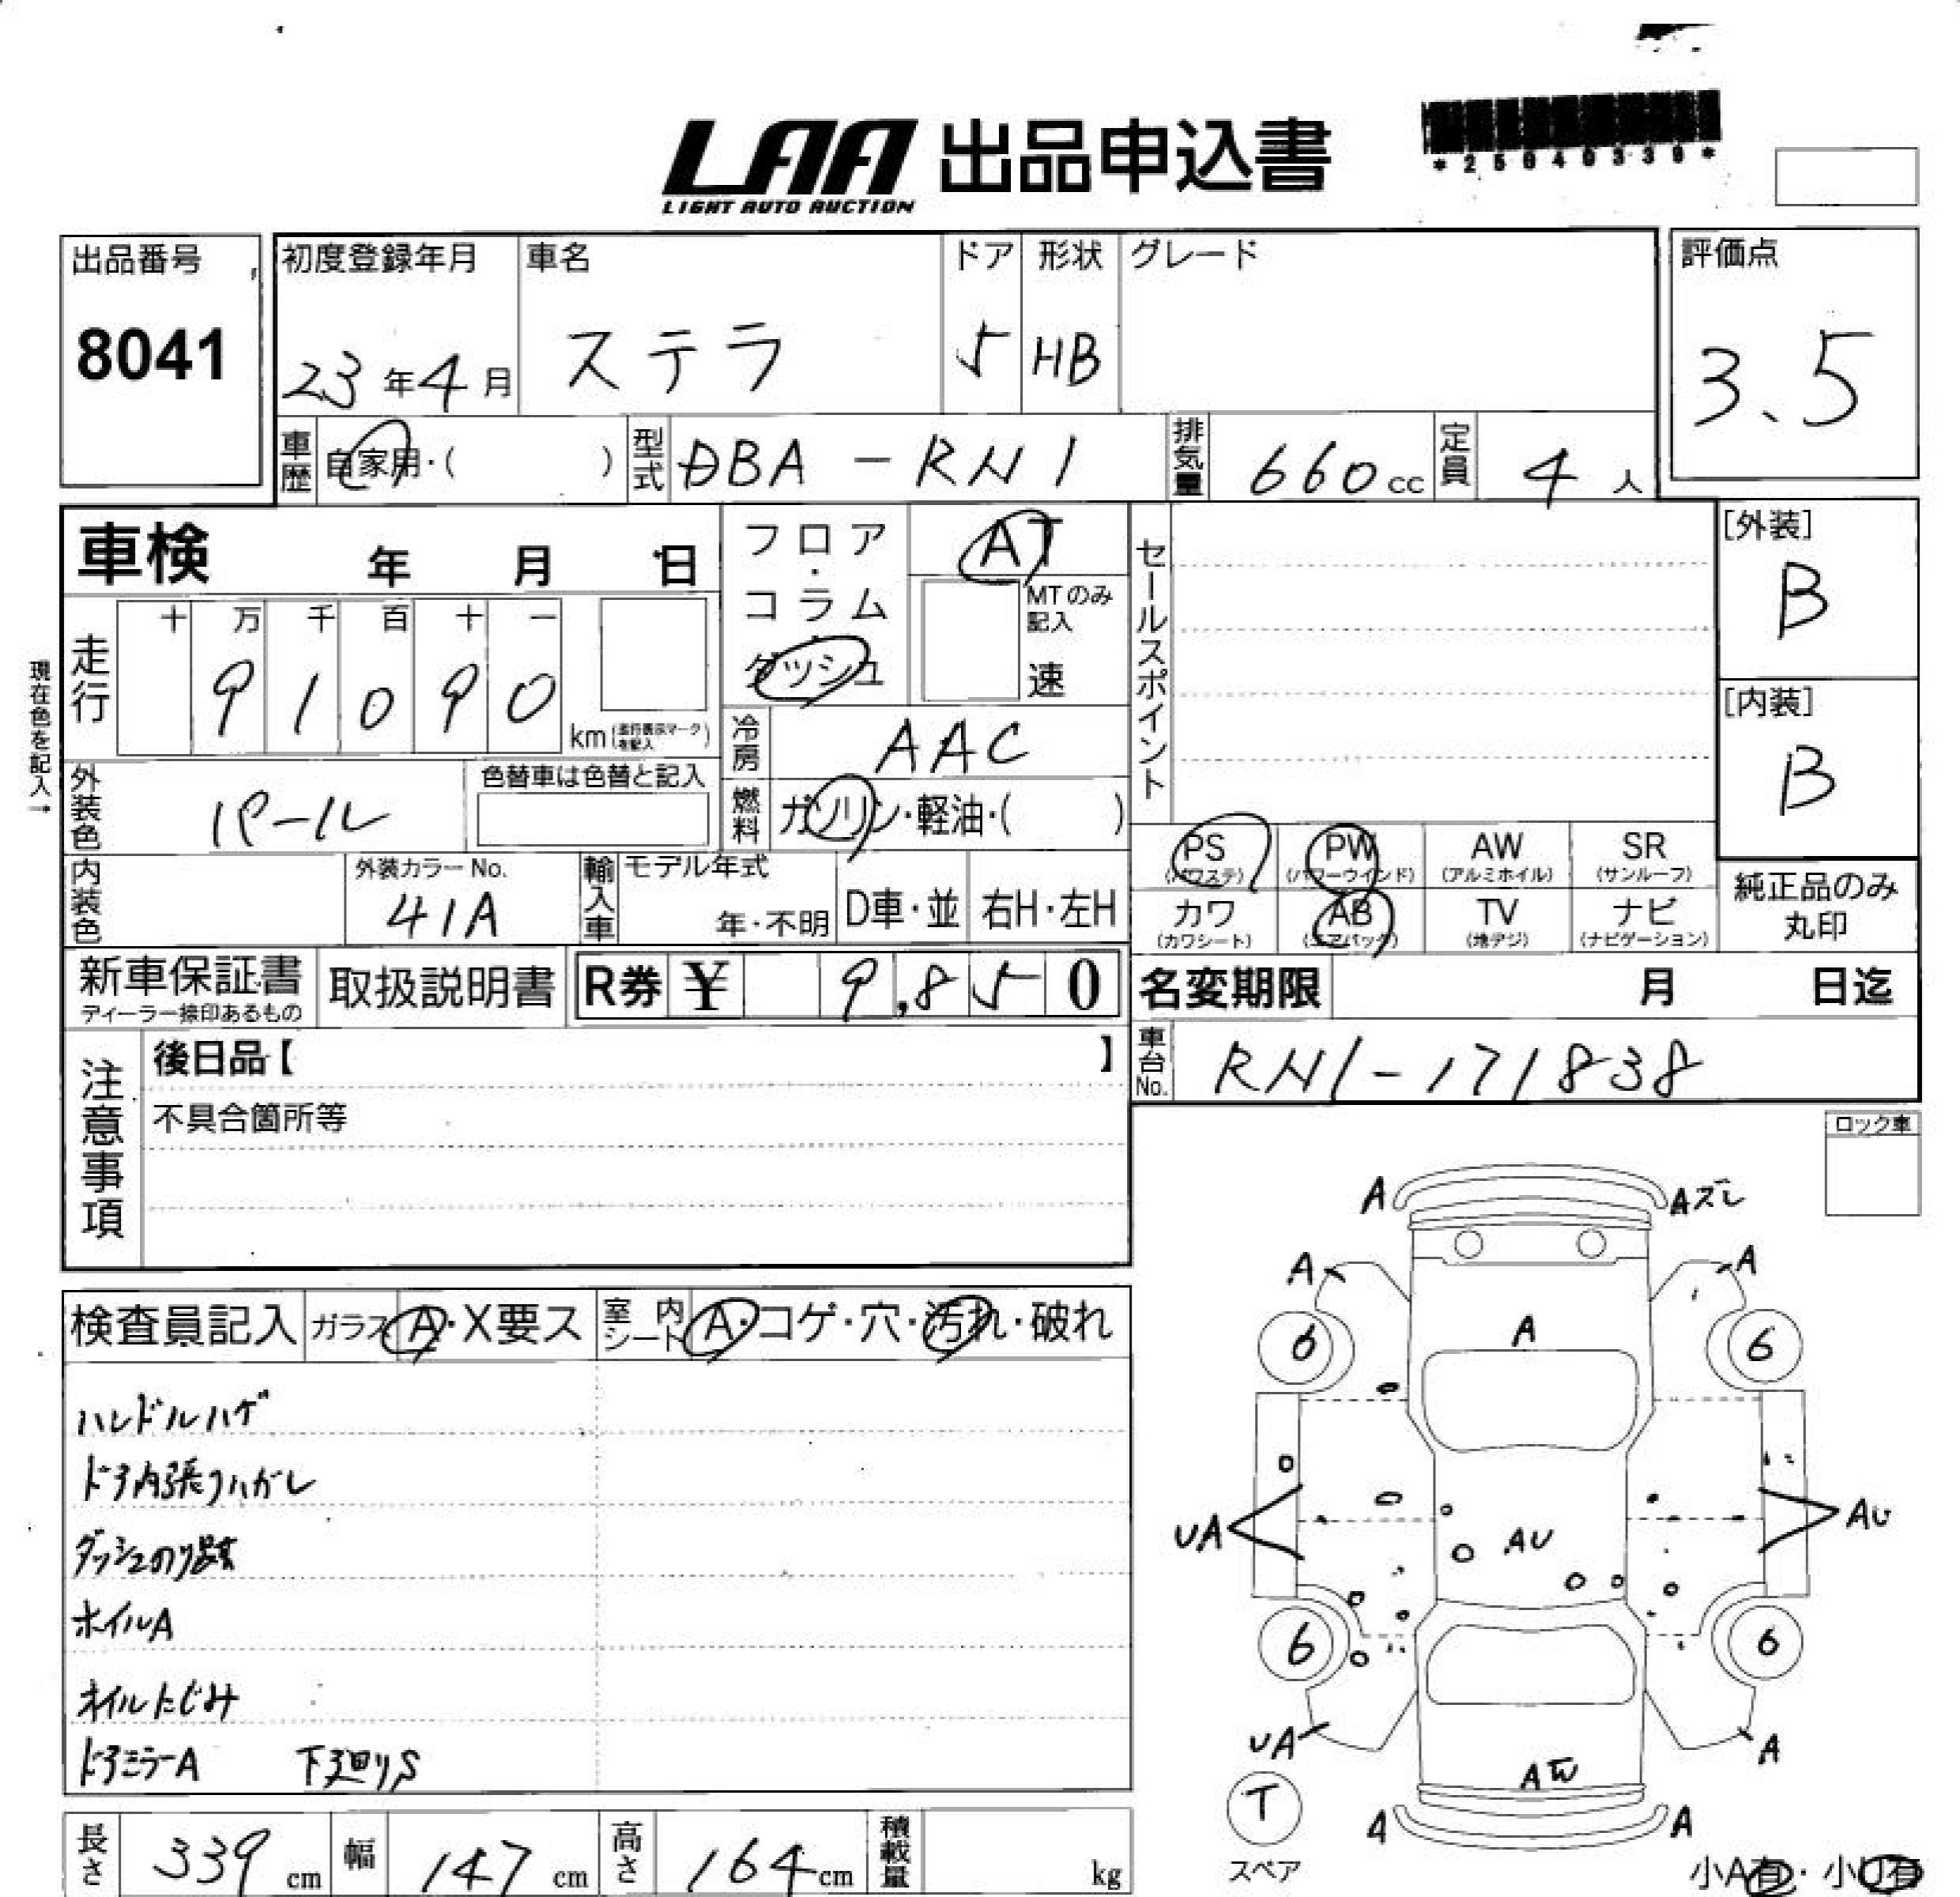 LAA 出品申込書
LIGHT AUTO AUCTION
*25040339*
出品番号
8041
初度登録年月
23年4月
車名
ステラ
ドア
5
形状
HB
グレード
評価点
3.5
車歴
自家用・( )
型式
DBA-RN1
排気量
660cc
定員
4人
車検 年 月 日
走行
十 万 千 百 十 一
9 1 0 9 0
km
現在色を記入→
フロア・コラム・ダッシュ
AT
MTのみ記入
速
冷房
AAC
燃料
ガソリン・軽油・( )
セールスポイント
[外装]
B
[内装]
B
外装色
パール
色替車は色替と記入
内装色
外装カラーNo.
41A
輸入車
モデル年式
年・不明
D車・並
右H・左H
PS
(パワステ)
PW
(パワーウインド)
AW
(アルミホイル)
SR
(サンルーフ)
カワ
(カワシート)
AB
(エアバッグ)
TV
(地デジ)
ナビ
(ナビゲーション)
純正品のみ丸印
新車保証書
ディーラー捺印あるもの
取扱説明書
R券 ¥ 9,850
名変期限 月 日迄
車台No.
RN1-171838
注意事項
後日品【 】
不具合箇所等
ロック車
検査員記入
ガラス A・X要ス
室内シート A・コゲ・穴・汚れ・破れ
ハンドルハゲ
ドア内張りハガレ
ダッシュのり跡
ホイルA
オイルにじみ
ドアミラーA 下廻りS
A
Aズレ
A
A
6
A
6
UA
AU
AU
6
6
UA
A
T
スペア
A
A
小A有・小U有
長さ
339cm
幅
147cm
高さ
164cm
積載量
kg